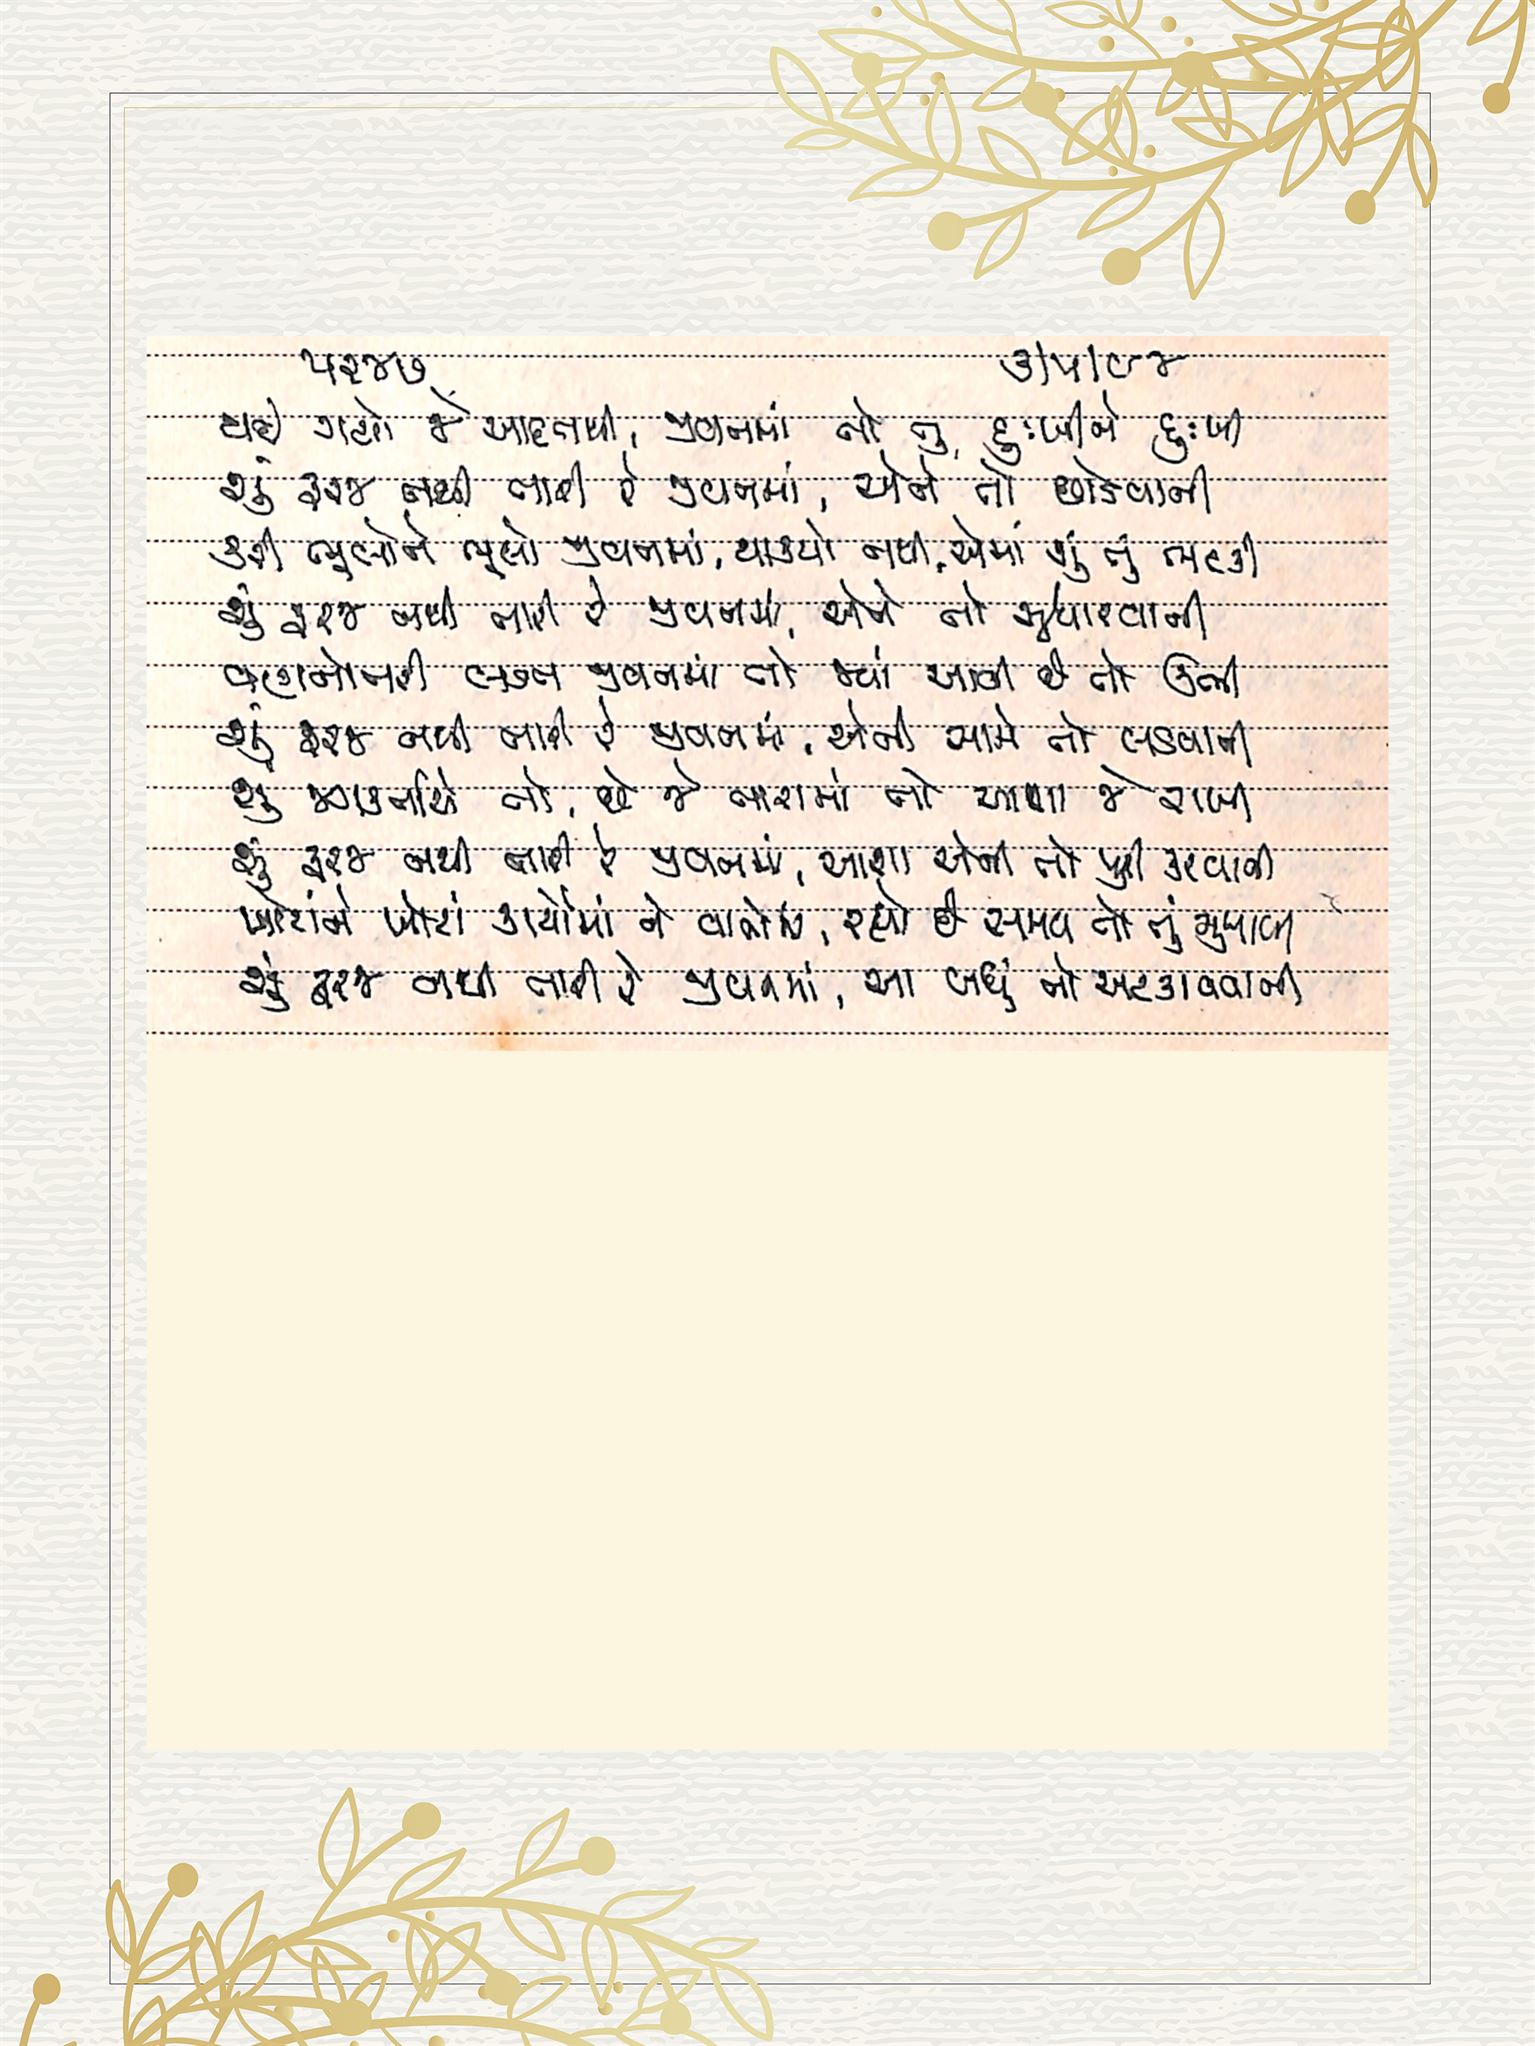 ૫૨૪૭ ૩/૫/૯૪
થઈ ગયો જે આદતથી, જીવનમાં તો તું દુઃખીને દુઃખી
શું ફરજ નથી તારી રે જીવનમાં, એને તો છોડવાની
કરી ભૂલોને ભૂલો જીવનમાં, થાક્યો નથી, એમાં શું તું ભટકી
શું ફરજ નથી તારી રે જીવનમાં, એને તો સુધારવાની
લગનભરી લગન જીવનમાં તો જ્યાં આવી છે તો ઊભી
શું ફરજ નથી તારી રે જીવનમાં, એની સામે તો લડવાની
શું જગકર્તાએ તો, છે જે તારામાં તો આશા જે રાખી
શું ફરજ નથી તારી રે જીવનમાં, આશા એની તો પુરી કરવાની
ખોટાંને ખોટાં કાર્યોમાં ને, રહ્યો છે સમય તો તું
શું ફરજ નથી તારી રે જીવનમાં, આ બધું તો અટકાવવાની